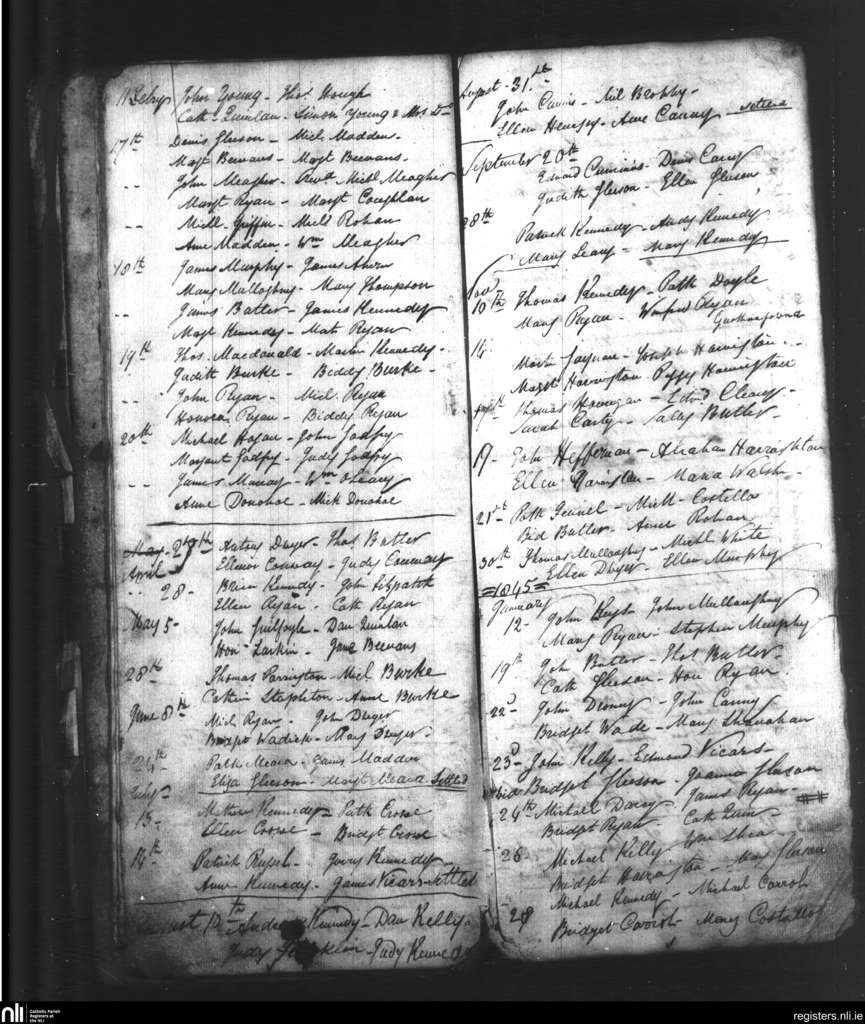 11 Febry John Young - Thos Hough
Cath Quinlan - Simon Young & Mrs Do
17th Denis Gleeson - Michl Madden
Margt Beevans - Margt Beevans
-- John Meagher - Revd Michl Meagher
Margt Ryan - Margt Coughlan
-- Michl Griffin - Michl Rohan
Anne Madden - Wm Meagher
18th James Murphy - James
Mary Mullaghny - Mary Thompson
-- James Butler - James Kennedy
Margt Kennedy - Mat Ryan
19th Thos. Macdonald - Martin Kennedy
Judith Burke - Biddy Burke
-- John Ryan - Michl Ryan
Honora Ryan - Biddy Ryan
20th Michael Hogan - John Godfry
Margaret Godfry - Judy Godfry
-- James Murray - Wm O'Leary
Anne Donohoe - Mick Donohoe
May 27th Antony Dwyer - Thos Butler
April Ellenor Conway - Judy Conway
-- 28 - Brien Kennedy - John Fitzpatrick
Ellen Ryan - Cath Ryan
May 5 - John Guilfoyle - Dan Quinlan
Hon Larkin - Jane Beevans
28th Thomas Parrington - Michl Burke
Stapleton - Anne Burke
June 8th Mich Ryan - John Dwyer
Bridget - Mary Dwyer
24th Patk Meara - James Madden
Eliza Gleeson - Margt Meara Settled
July
13 - Mathew Kennedy - Patk Crowe
Ellen Crowe - Bridget Crowe
14th Patrick - Kennedy
Anne Kennedy - James Vicars - settled
August 10th Andrew Kennedy - Dan Kelly
Judy - Judy Kennedy
August - 31st
John - Mil Brophy
Ellen - Anne Canny settled
September 20th
Edmond Cummins - Denis Carey
Judith Gleeson - Ellen Gleeson
28th
Patrick Kennedy - Andy Kennedy
Mary Leary - Mary Kennedy
Nov
10th Thomas Kennedy - Patk Doyle
Mary Ryan - Winfred Ryan
14
- Joseph Harrington
Margt Harrington Peggy Harrington
Thomas - Edmd Cleary
Sarah Carty - Sally Butler
19 - John Heffernan - Abraham Harrington
Ellen Harrington - Maria Walsh
21st Patk Fennel - Michl Costello
Bid Butler - Anne Rohan
30th Thomas Mullaughny - Michl White
Ellen Dwyer - Ellen Murphy
=1845=
January
12 - John - John Mullaughny
Mary Ryan - Stephen Murphy
19th John Butler - Thos Butler
Cath Gleeson - Hon Ryan
22d John - John Canny
Bridget Wade - Mary Shanahan
23d John Kelly - Edmond Vicars
Bridget Gleeson - Gleeson
24th Michael Darcy - James Ryan
Bridget Ryan - Cath Quin
26 - Michael Kelly - Wm Shea
Bridget Harrington - Mary Gleeson
Michael Kennedy - Michael Carrol
28 Bridget - Mary Costello
nli Catholic Parish
Registers at
the NLI
registers.nli.ie